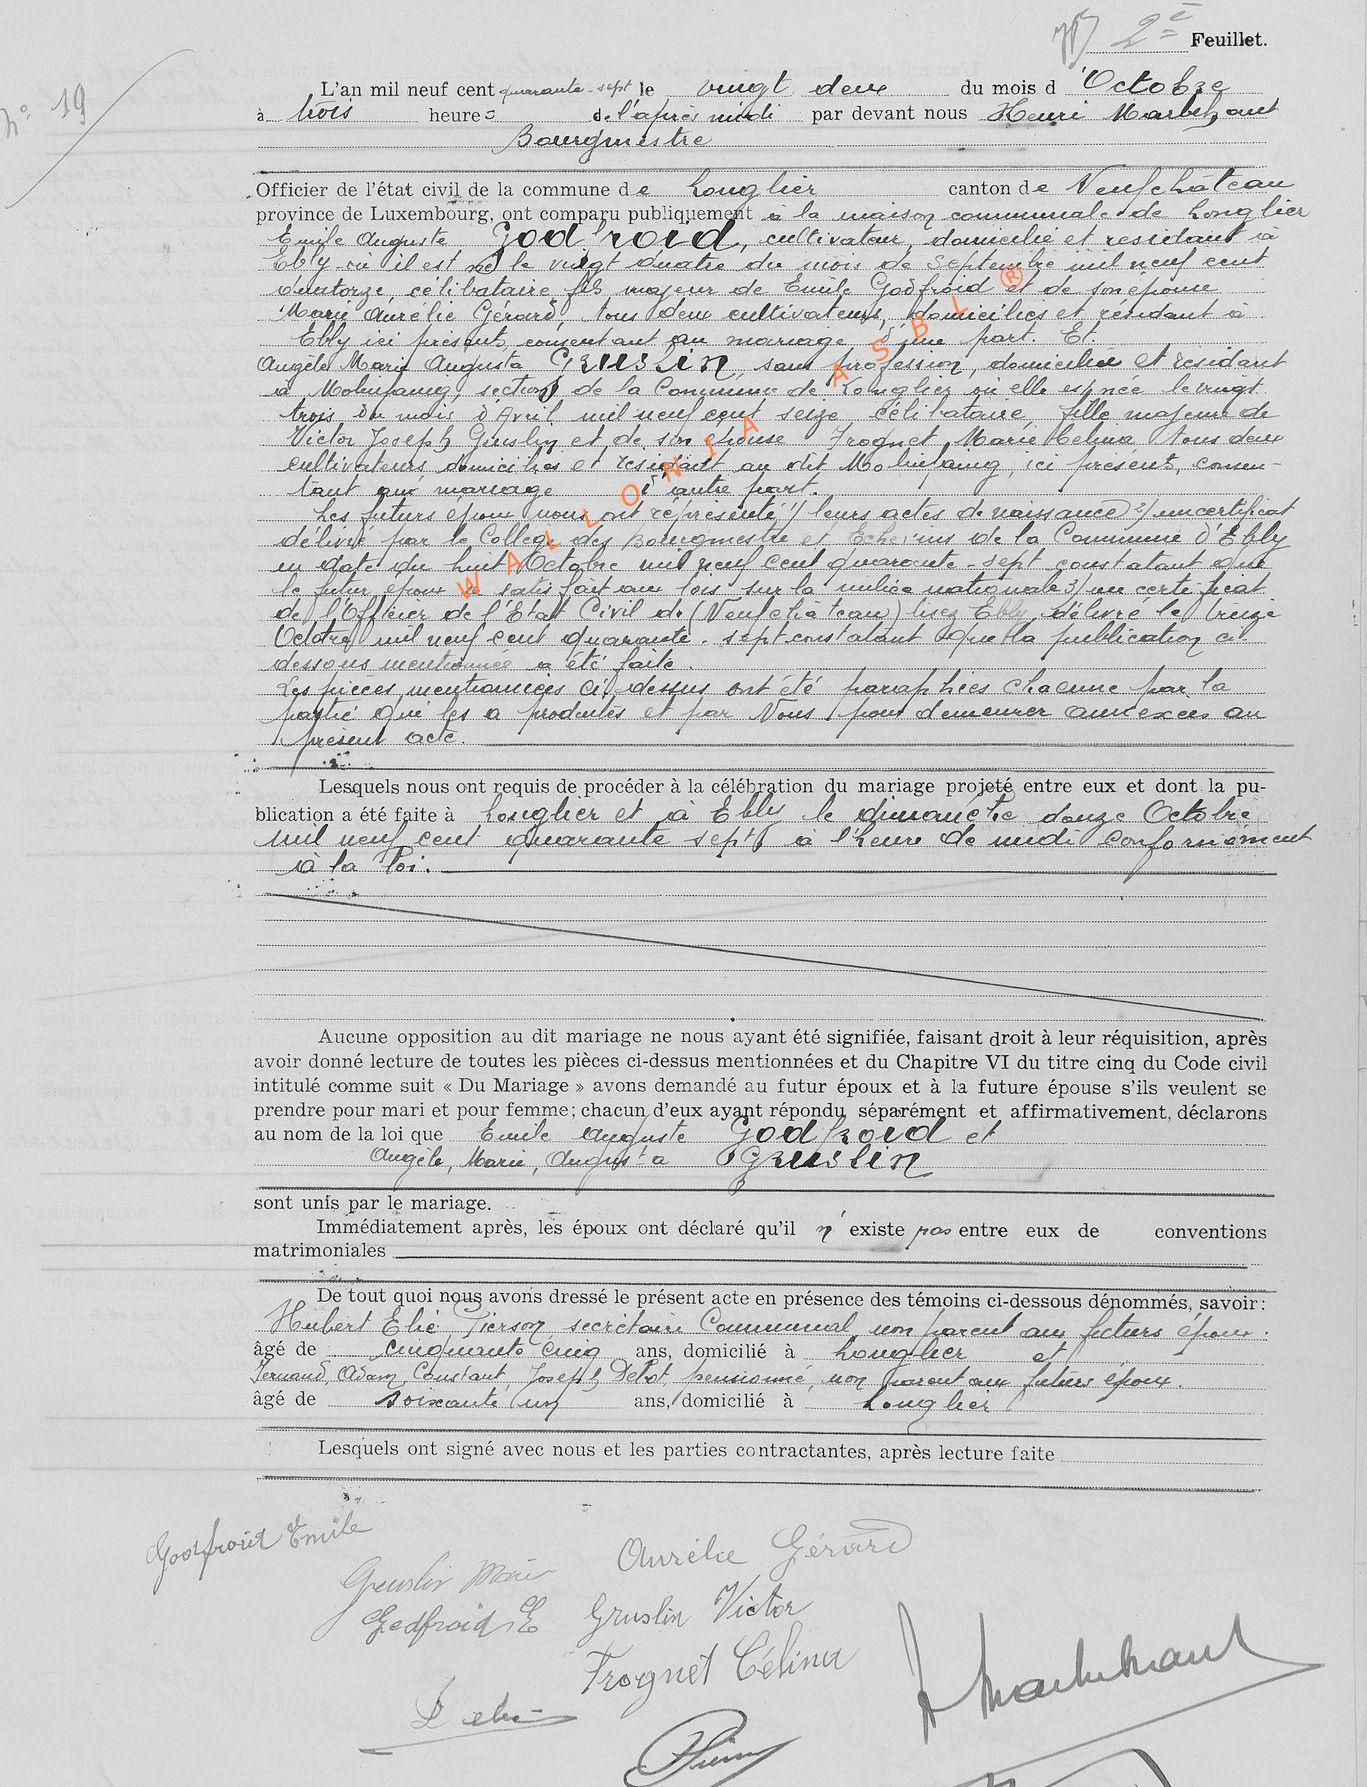 2e Feuillet.
No 19
L'an mil neuf cent quarante-sept le vingt deux du mois d'Octobre
à trois heures de l'après midi par devant nous Henri
Bourgmestre
Officier de l'état civil de la commune de Longlier canton de Neufchâteau
province de Luxembourg, ont comparu publiquement à la maison communale de Longlier
Emile Auguste Godfroid, cultivateur, domicilié et résidant à
Ebly où il est né le vingt quatre du mois de Septembre mil neuf cent
célibataire, fils majeur de Emile Godfroid et de son épouse
Marie Aurélie Gérard, tous deux cultivateurs, domiciliés et résidant à
Ebly ici présents, consentant au mariage d'une part. Et
Angèle Marie Augusta Gruslin, sans profession, domiciliée et résidant
à Molinfaing, section de la Commune de Longlier où elle est née le vingt
trois du mois d'Avril mil neuf cent seize célibataire, fille majeure de
Victor Joseph Gruslin et de son épouse Frognet Marie Celina tous deux
cultivateurs domiciliés et résidant au dit Molinfaing, ici présents, consen-
tant au mariage d'autre part.
Les futurs époux nous ont représenté 1/ leurs actes de naissance 2/ un certificat
délivré par le Collège des Bourgmestre et Echevins de la Commune d'Ebly
en date du huit Octobre mil neuf cent quarante-sept constatant que
le futur époux a satisfait aux lois sur la milice nationale 3/ un certificat
de l'Officier de l'Etat Civil de (Neufchâteau) lisez Ebly, délivré le treize
Octobre mil neuf cent quarante-sept constatant que la publication ci
dessous mentionnée a été faite.
Les pièces mentionnées ci-dessus ont été paraphées chacune par la
partie qui les a produites et par Nous pour demeurer annexées au
présent acte.
Lesquels nous ont requis de procéder à la célébration du mariage projeté entre eux et dont la pu-
blication a été faite à Longlier et à Ebly le dimanche douze Octobre
mil neuf cent quarante sept à l'heure de midi conformément
à la loi.
Aucune opposition au dit mariage ne nous ayant été signifiée, faisant droit à leur réquisition, après
avoir donné lecture de toutes les pièces ci-dessus mentionnées et du Chapitre VI du titre cinq du Code civil
intitulé comme suit « Du Mariage » avons demandé au futur époux et à la future épouse s'ils veulent se
prendre pour mari et pour femme; chacun d'eux ayant répondu séparément et affirmativement, déclarons
au nom de la loi que Emile Auguste Godfroid et
Angèle, Marie, Augusta Gruslin
sont unis par le mariage.
Immédiatement après, les époux ont déclaré qu'il n'existe pas entre eux de conventions
matrimoniales
De tout quoi nous avons dressé le présent acte en présence des témoins ci-dessous dénommés, savoir:
Hubert Elie Pierson secrétaire Communal non parent aux futurs époux.
âgé de cinquante cinq ans, domicilié à Longlier et
Fernand, Adam, Constant, Joseph pensionné, non parent aux futurs époux.
âgé de soixante un ans, domicilié à Longlier
Lesquels ont signé avec nous et les parties contractantes, après lecture faite
Godfroid Emile
Aurélie Gérard
Gruslin Marie
Godfroid E
Gruslin Victor
Frognet Célina
WALLONIA ASBL ®